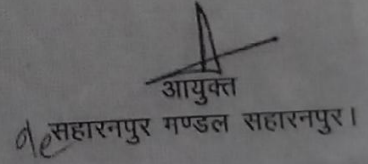 आयुक्त
सहारनपुर मण्डल सहारनपुर।